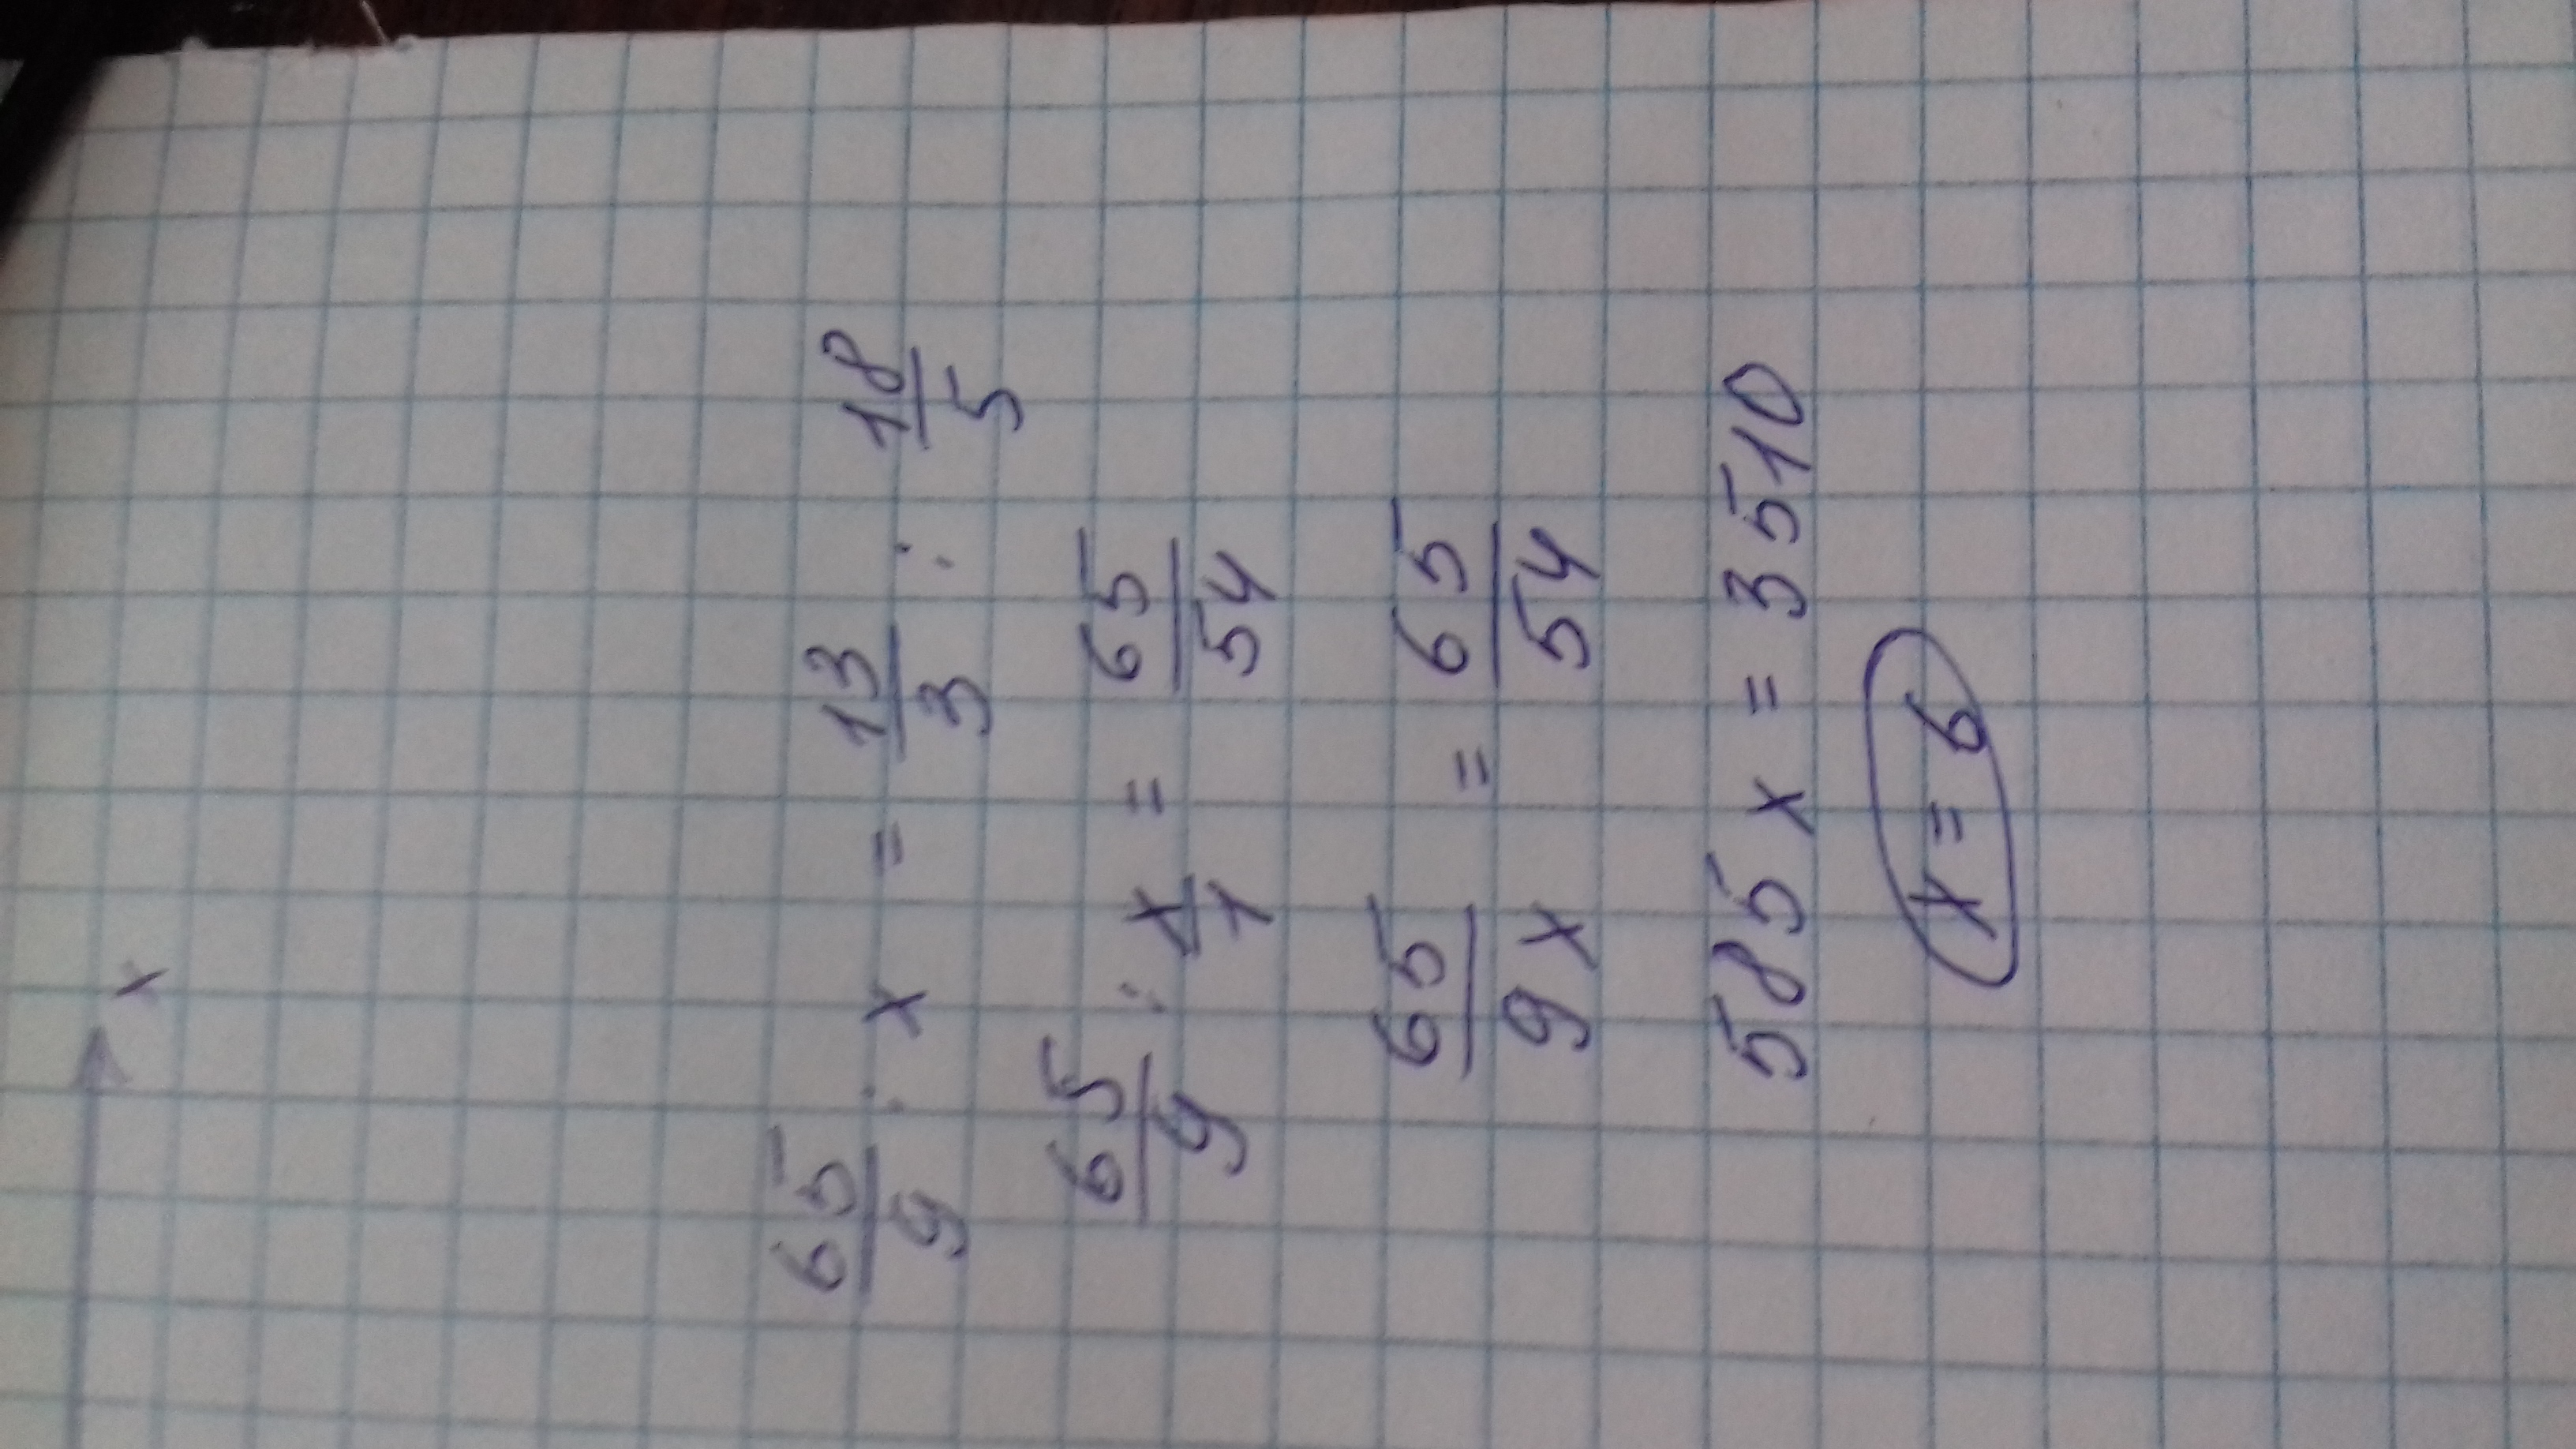 x
65/9 : x = 13/3 : 18/5
65/9 : x/1 = 65/54
65/9x = 65/54
585x = 3510
x = 6